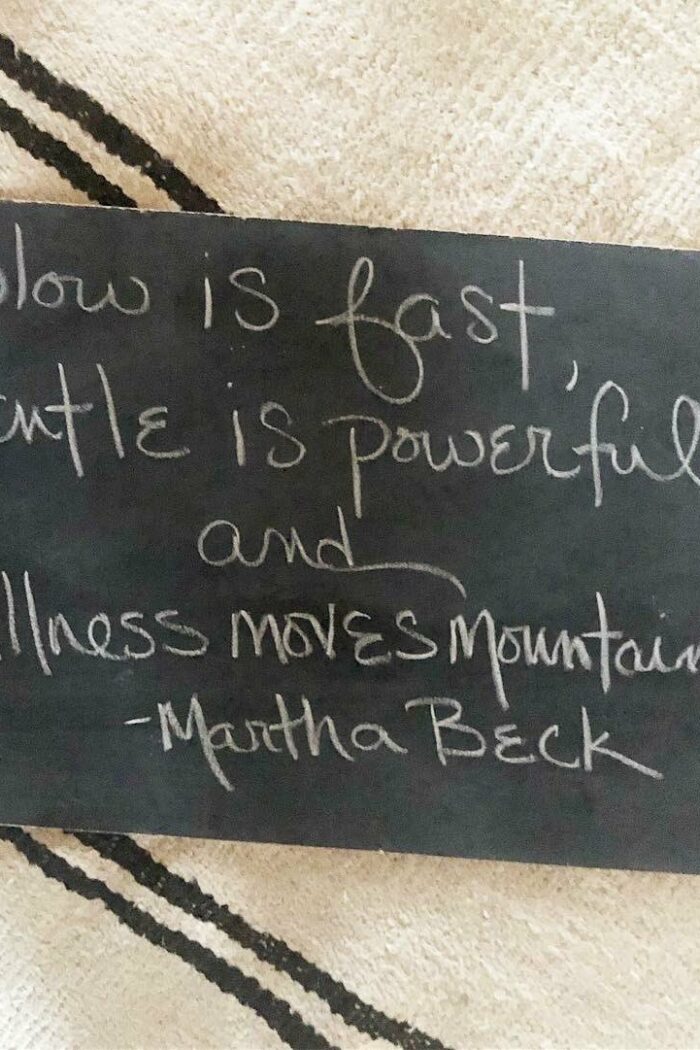 slow is fast,
entle is powerful
and
llness moves mountain
-Martha Beck